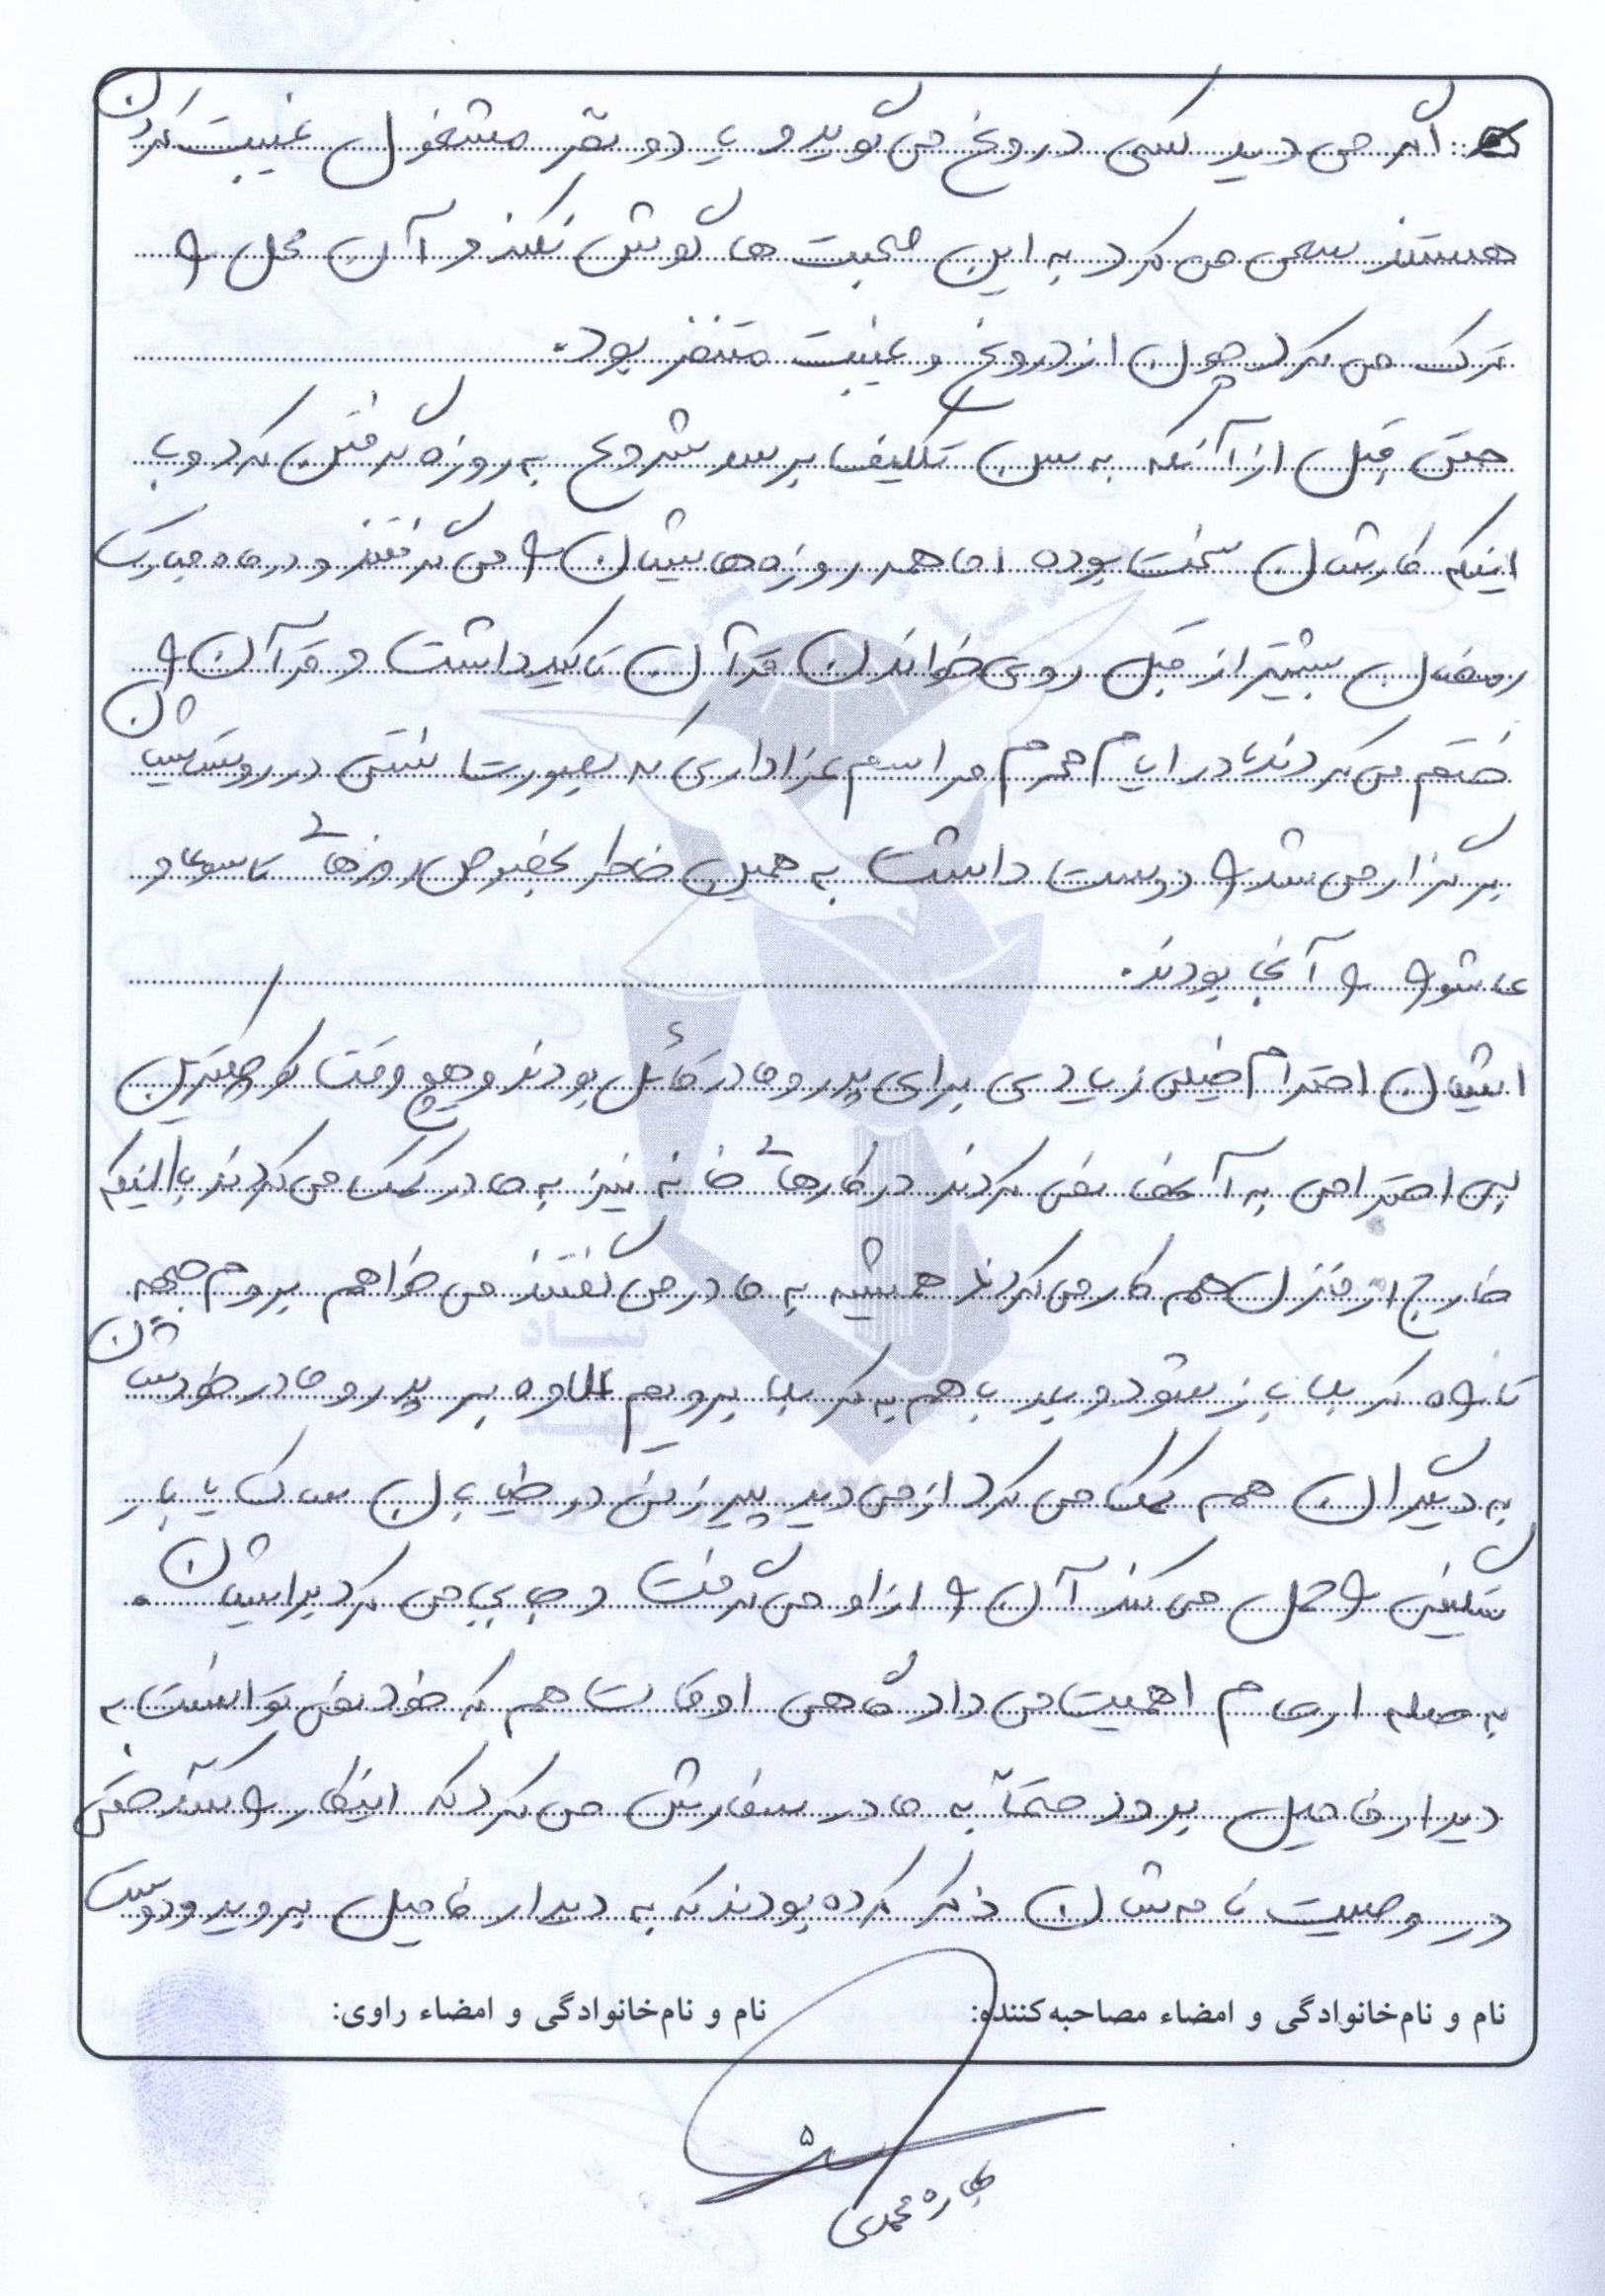 اگر می دید کسی دروغ می گوید و یا دو نفر مشغول غیبت کردن
هستند سعی می کرد به این صحبت ها گوش نکند و آن محل را
ترک می کرد چون از دروغ و غیبت متنفر بود.
حتی قبل از آنکه به سن تکلیف برسد شروع به روزه گرفتن کرد و با
اینکه کارشان سخت بوده اما همه روزه هایشان را می گرفتند و در ماه مبارک
رمضان بیشتر از قبل روی خواندن قرآن تاکید داشت و قرآن را
ختم می کردند، در ایام محرم مراسم عزاداری که بصورت سنتی در روستایشان
برگزار می شد را دوست داشت به همین خاطر بخصوص روزهای تاسوعا و
عاشورا را آنجا بودند.
ایشان احترام خیلی زیادی برای پدر و مادر قائل بودند و هیچ وقت کوچکترین
بی احترامی به آنها نمی کردند در کارهای خانه نیز به مادر کمک می کردند با اینکه
خارج از منزل هم کار می کردند همیشه به مادر می گفتند می خواهم بروم جبهه
تا راه کربلا باز شود و بعد باهم به کربلا برویم علاوه بر پدر و مادر خودشان
به دیگران هم کمک می کرد اگر می دید پیرزنی در خیابان ساک یا بار
سنگینی را حمل می کند آن را از او می گرفت و جابجا می کرد برایشان.
به صله ارحام اهمیت می داد گاهی اوقات هم که خود نمی توانست به
دیدار فامیل برود حتماً به مادر سفارش می کرد که اینکار را بکند حتی
در وصیت نامه شان ذکر کرده بودند که به دیدار فامیل بروید و دوست
نام و نام‌خانوادگی و امضاء مصاحبه‌کننده: نام و نام‌خانوادگی و امضاء راوی:
۵
محمدی
بنیاد
شهید